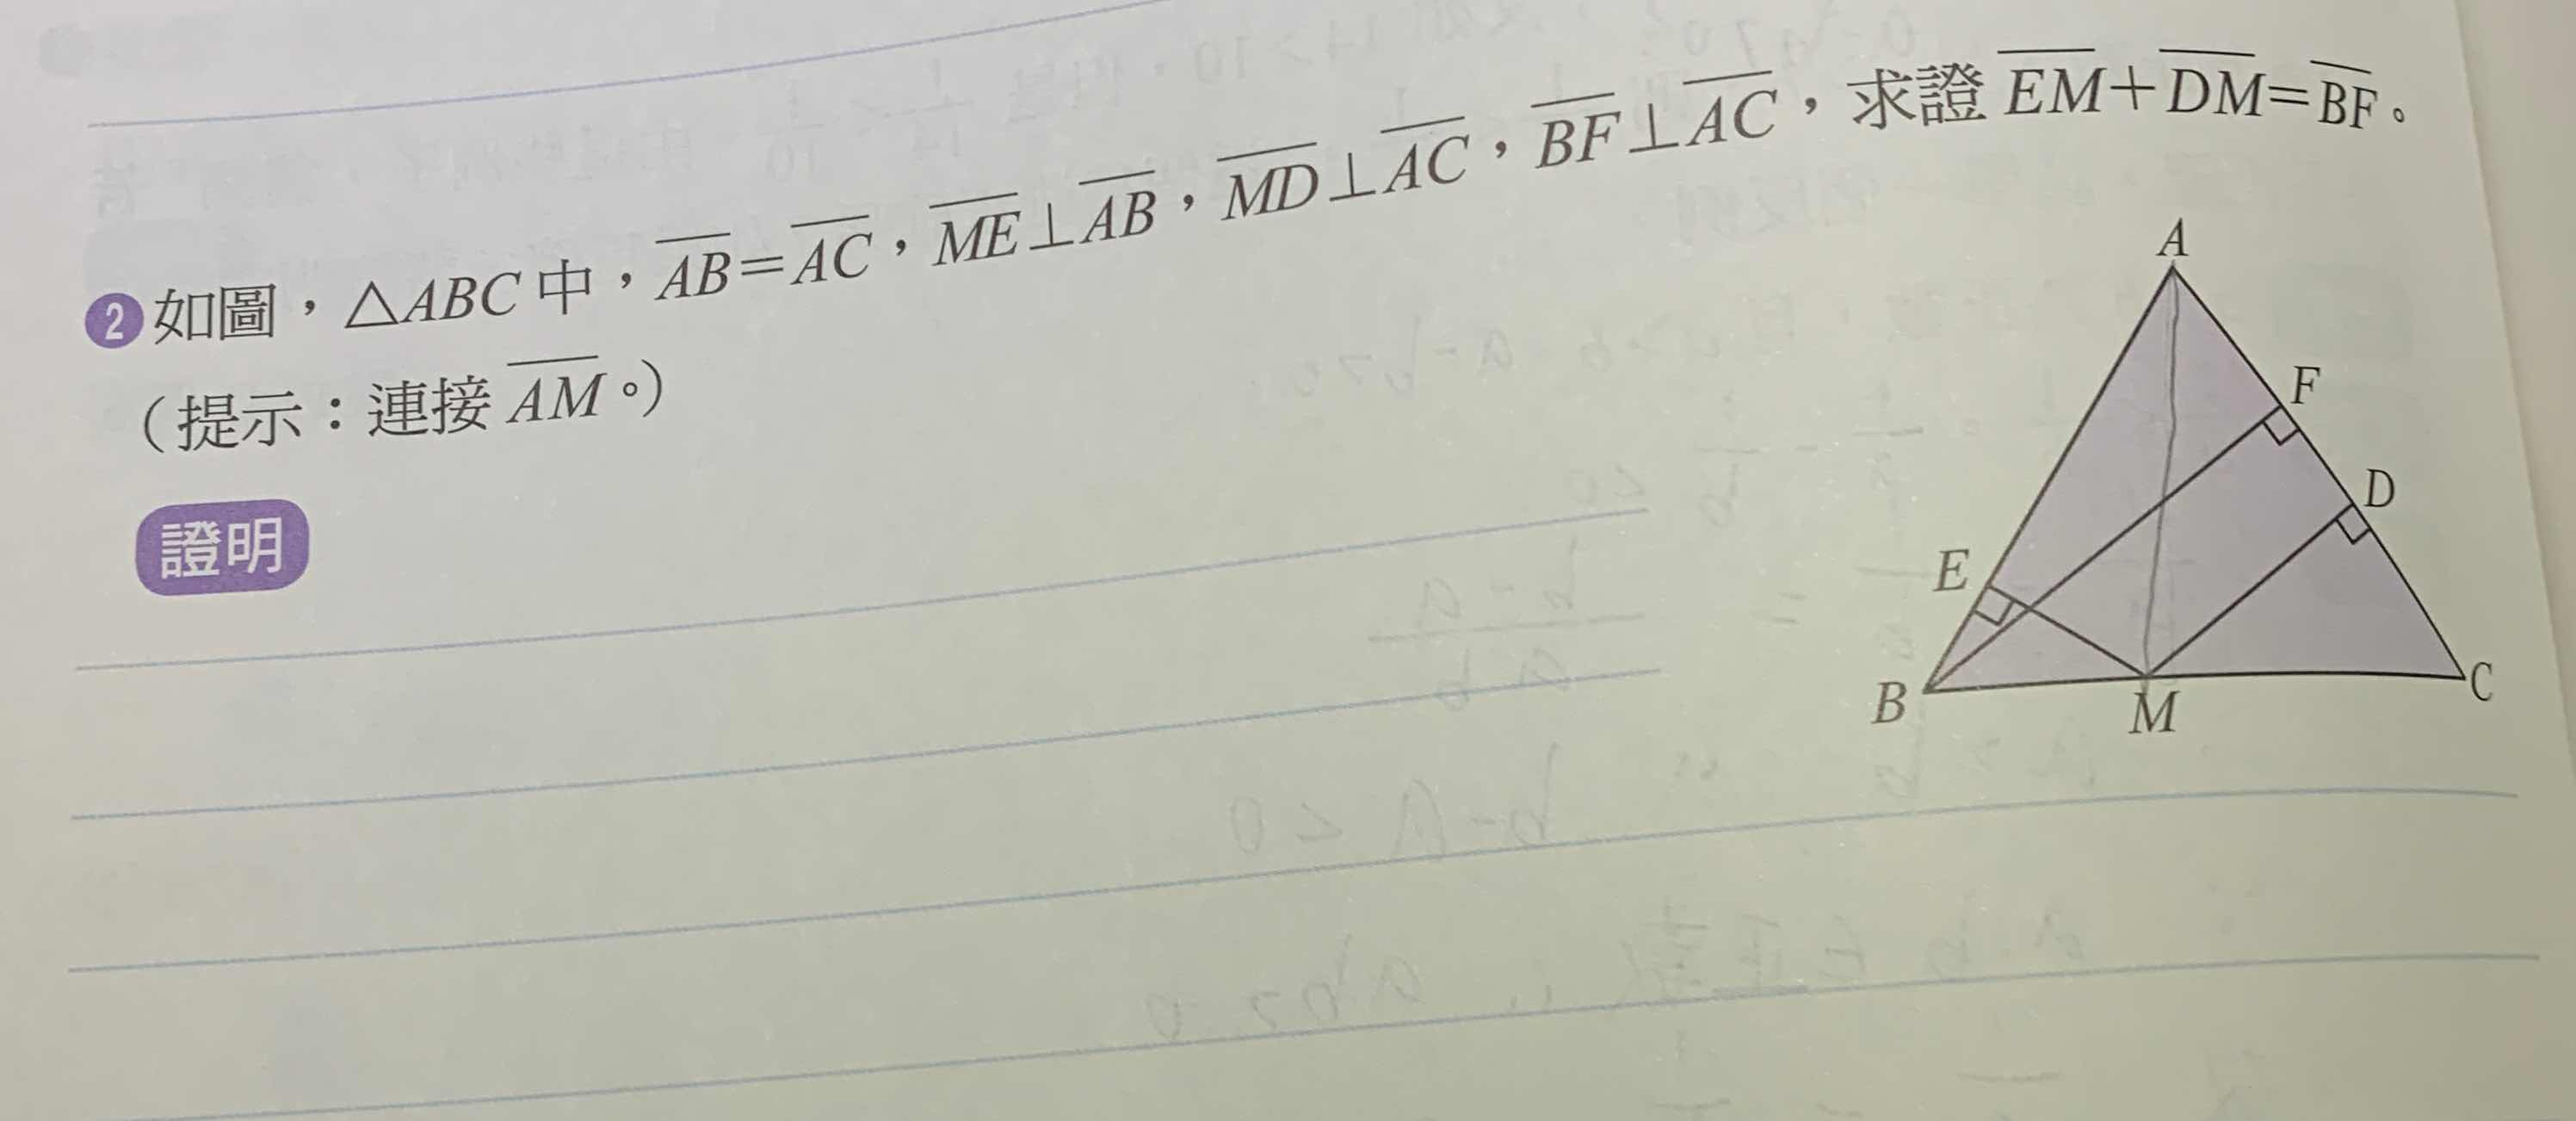 ❷如圖，△ABC中，\overline{AB}=\overline{AC}，\overline{ME}⊥\overline{AB}，\overline{MD}⊥\overline{AC}，\overline{BF}⊥\overline{AC}，求證\overline{EM}+\overline{DM}=\overline{BF}。
（提示：連接\overline{AM}。）
證明
A
F
D
E
B
M
C